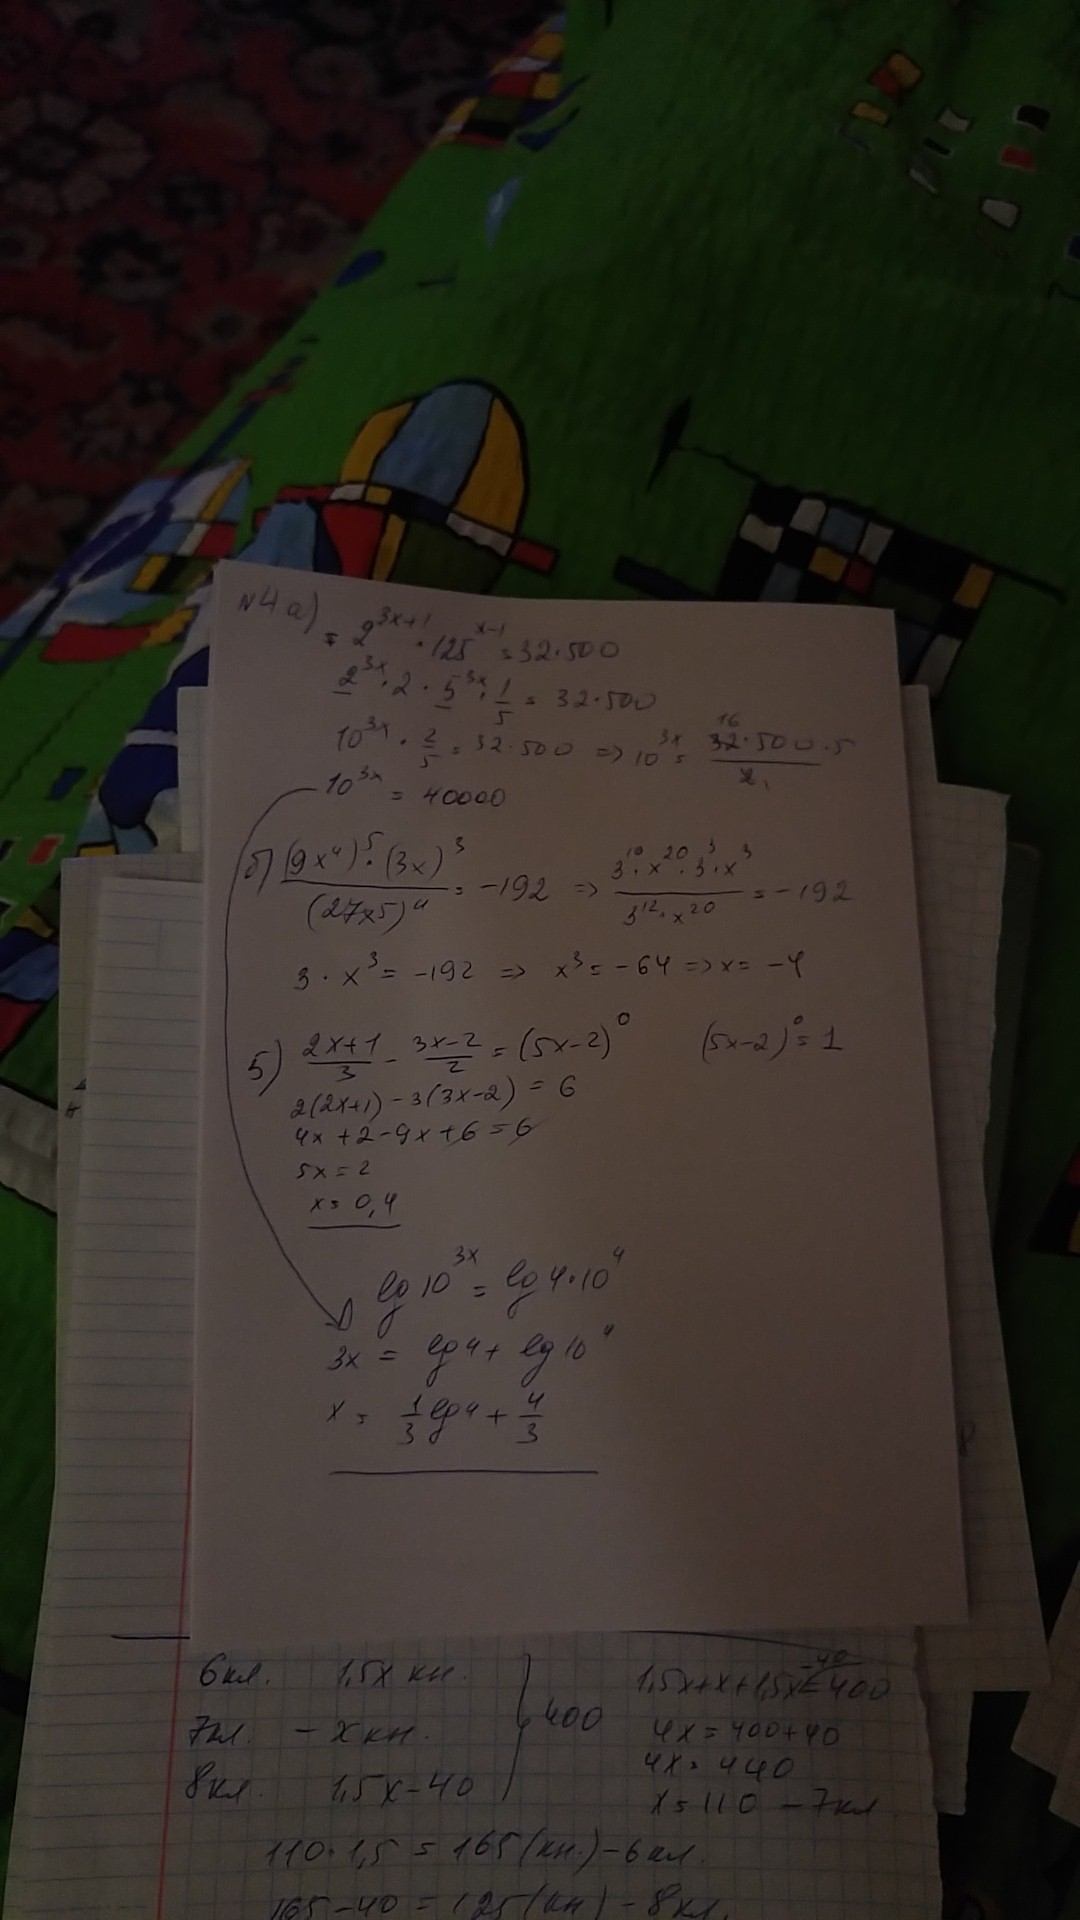 N4 а) = 2^{3x+1} · 125^{x-1} = 32·500
2^{3x} · 2 · 5^{3x} · 1/5 = 32·500
10^{3x} · 2/5 = 32·500 => 10^{3x} = 16 32·500·5 / 2 1
10^{3x} = 40000
б) (9x⁴)⁵ · (3x)³ / (27x5)⁴ = -192 => 3^{10} · x^{20} · 3³ · x³ / 3^{12} · x^{20} = -192
3 · x³ = -192 => x³ = -64 => x = -4
5) 2x+1/3 - 3x-2/2 = (5x-2)⁰ (5x-2)⁰ = 1
2(2x+1) - 3(3x-2) = 6
4x + 2 - 9x + 6 = 6
5x = 2
x = 0,4
lg 10^{3x} = lg 4·10⁴
3x = lg 4 + lg 10⁴
x = 1/3 lg 4 + 4/3
6кл. 1,5x кн. 1,5x+x+1,5x-40=400
7кл. - x кн. 400 4x = 400+40
8кл. 1,5x-40 4x = 440
x = 110 - 7кл
110·1,5 = 165 (кн.) - 6кл.
165-40 = 125 (кн) - 8кл.